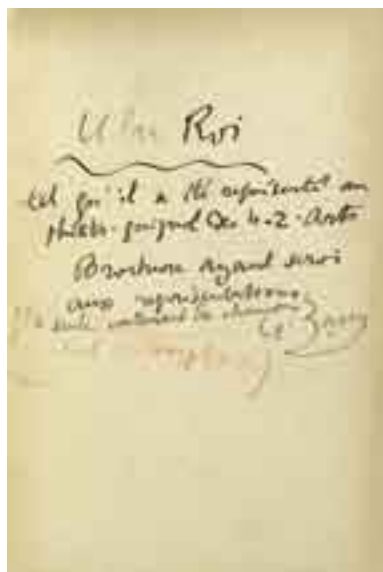 Ubu Roi
tel qu'il a été représenté au
théâtre guignol des 4-z-Arts
Brochure ayant servi
aux représentations
seule contenant la chanson